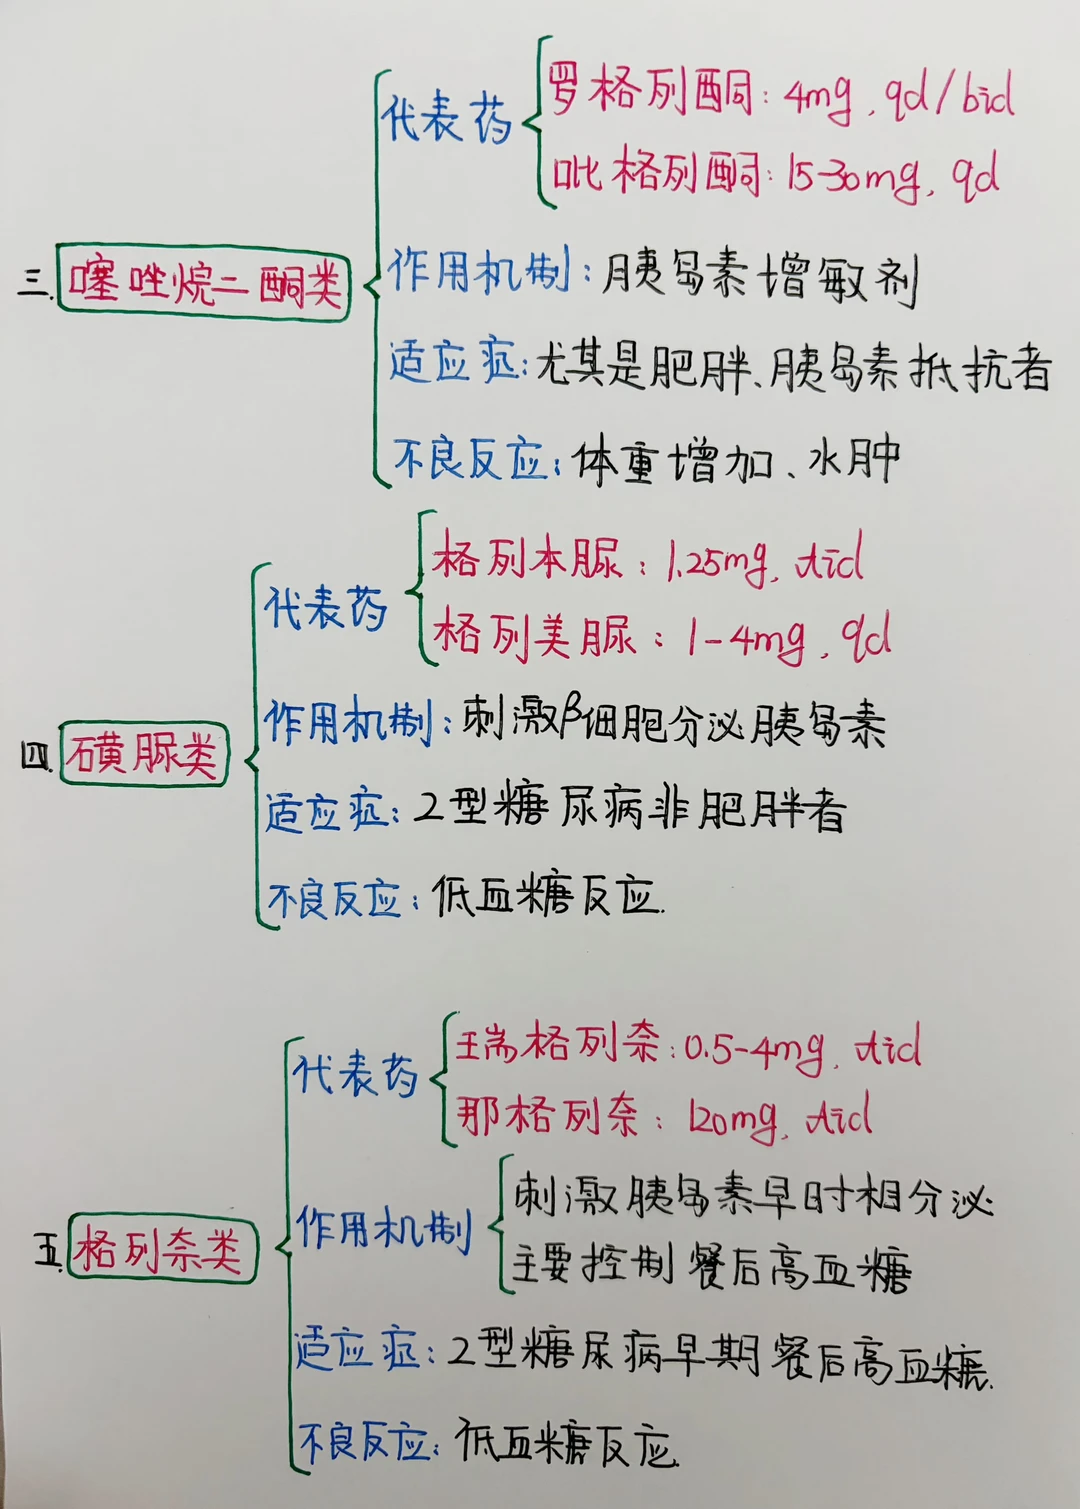 三. 噻唑烷二酮类
代表药
罗格列酮: 4mg, qd/bid
吡格列酮: 15-30mg, qd
作用机制: 胰岛素增敏剂
适应症: 尤其是肥胖、胰岛素抵抗者
不良反应: 体重增加、水肿
四. 磺脲类
代表药
格列本脲: 1.25mg, tid
格列美脲: 1-4mg, qd
作用机制: 刺激β细胞分泌胰岛素
适应症: 2型糖尿病非肥胖者
不良反应: 低血糖反应.
五. 格列奈类
代表药
瑞格列奈: 0.5-4mg, tid
那格列奈: 120mg, tid
作用机制
刺激胰岛素早时相分泌
主要控制餐后高血糖
适应症: 2型糖尿病早期餐后高血糖.
不良反应: 低血糖反应.